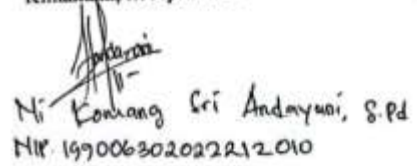 Ni Komang Sri Andayani, S.Pd
NIP. 199006302022212010